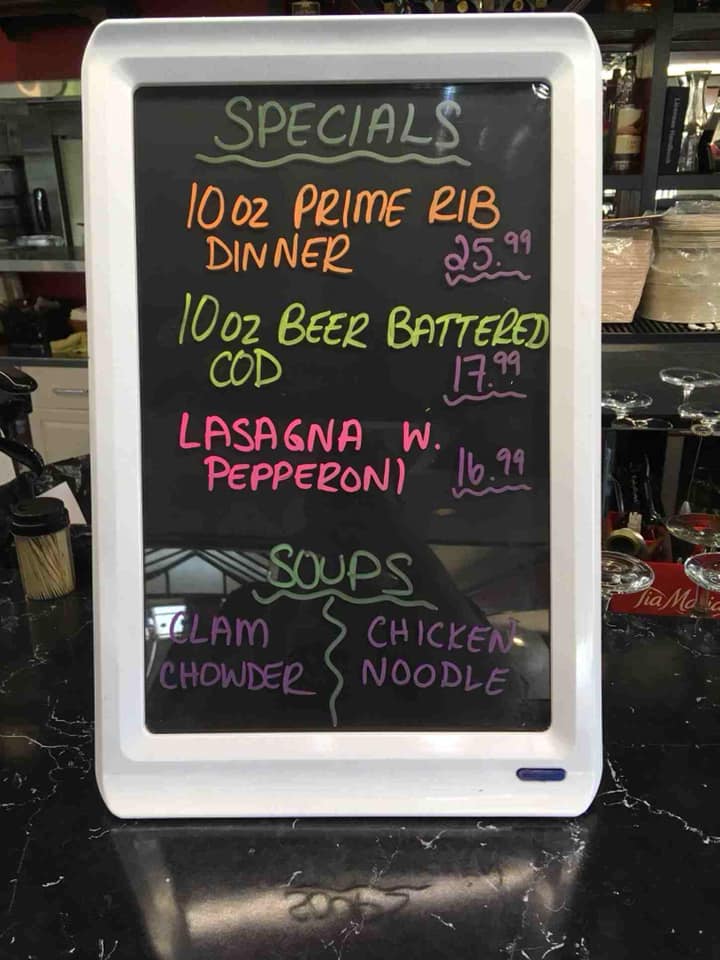 SPECIALS
10 OZ PRIME RIB
DINNER 25.99
10 OZ BEER BATTERED
COD 17.99
LASAGNA W.
PEPPERONI 16.99
SOUPS
CLAM CHICKEN
CHOWDER NOODLE
Tia Maria